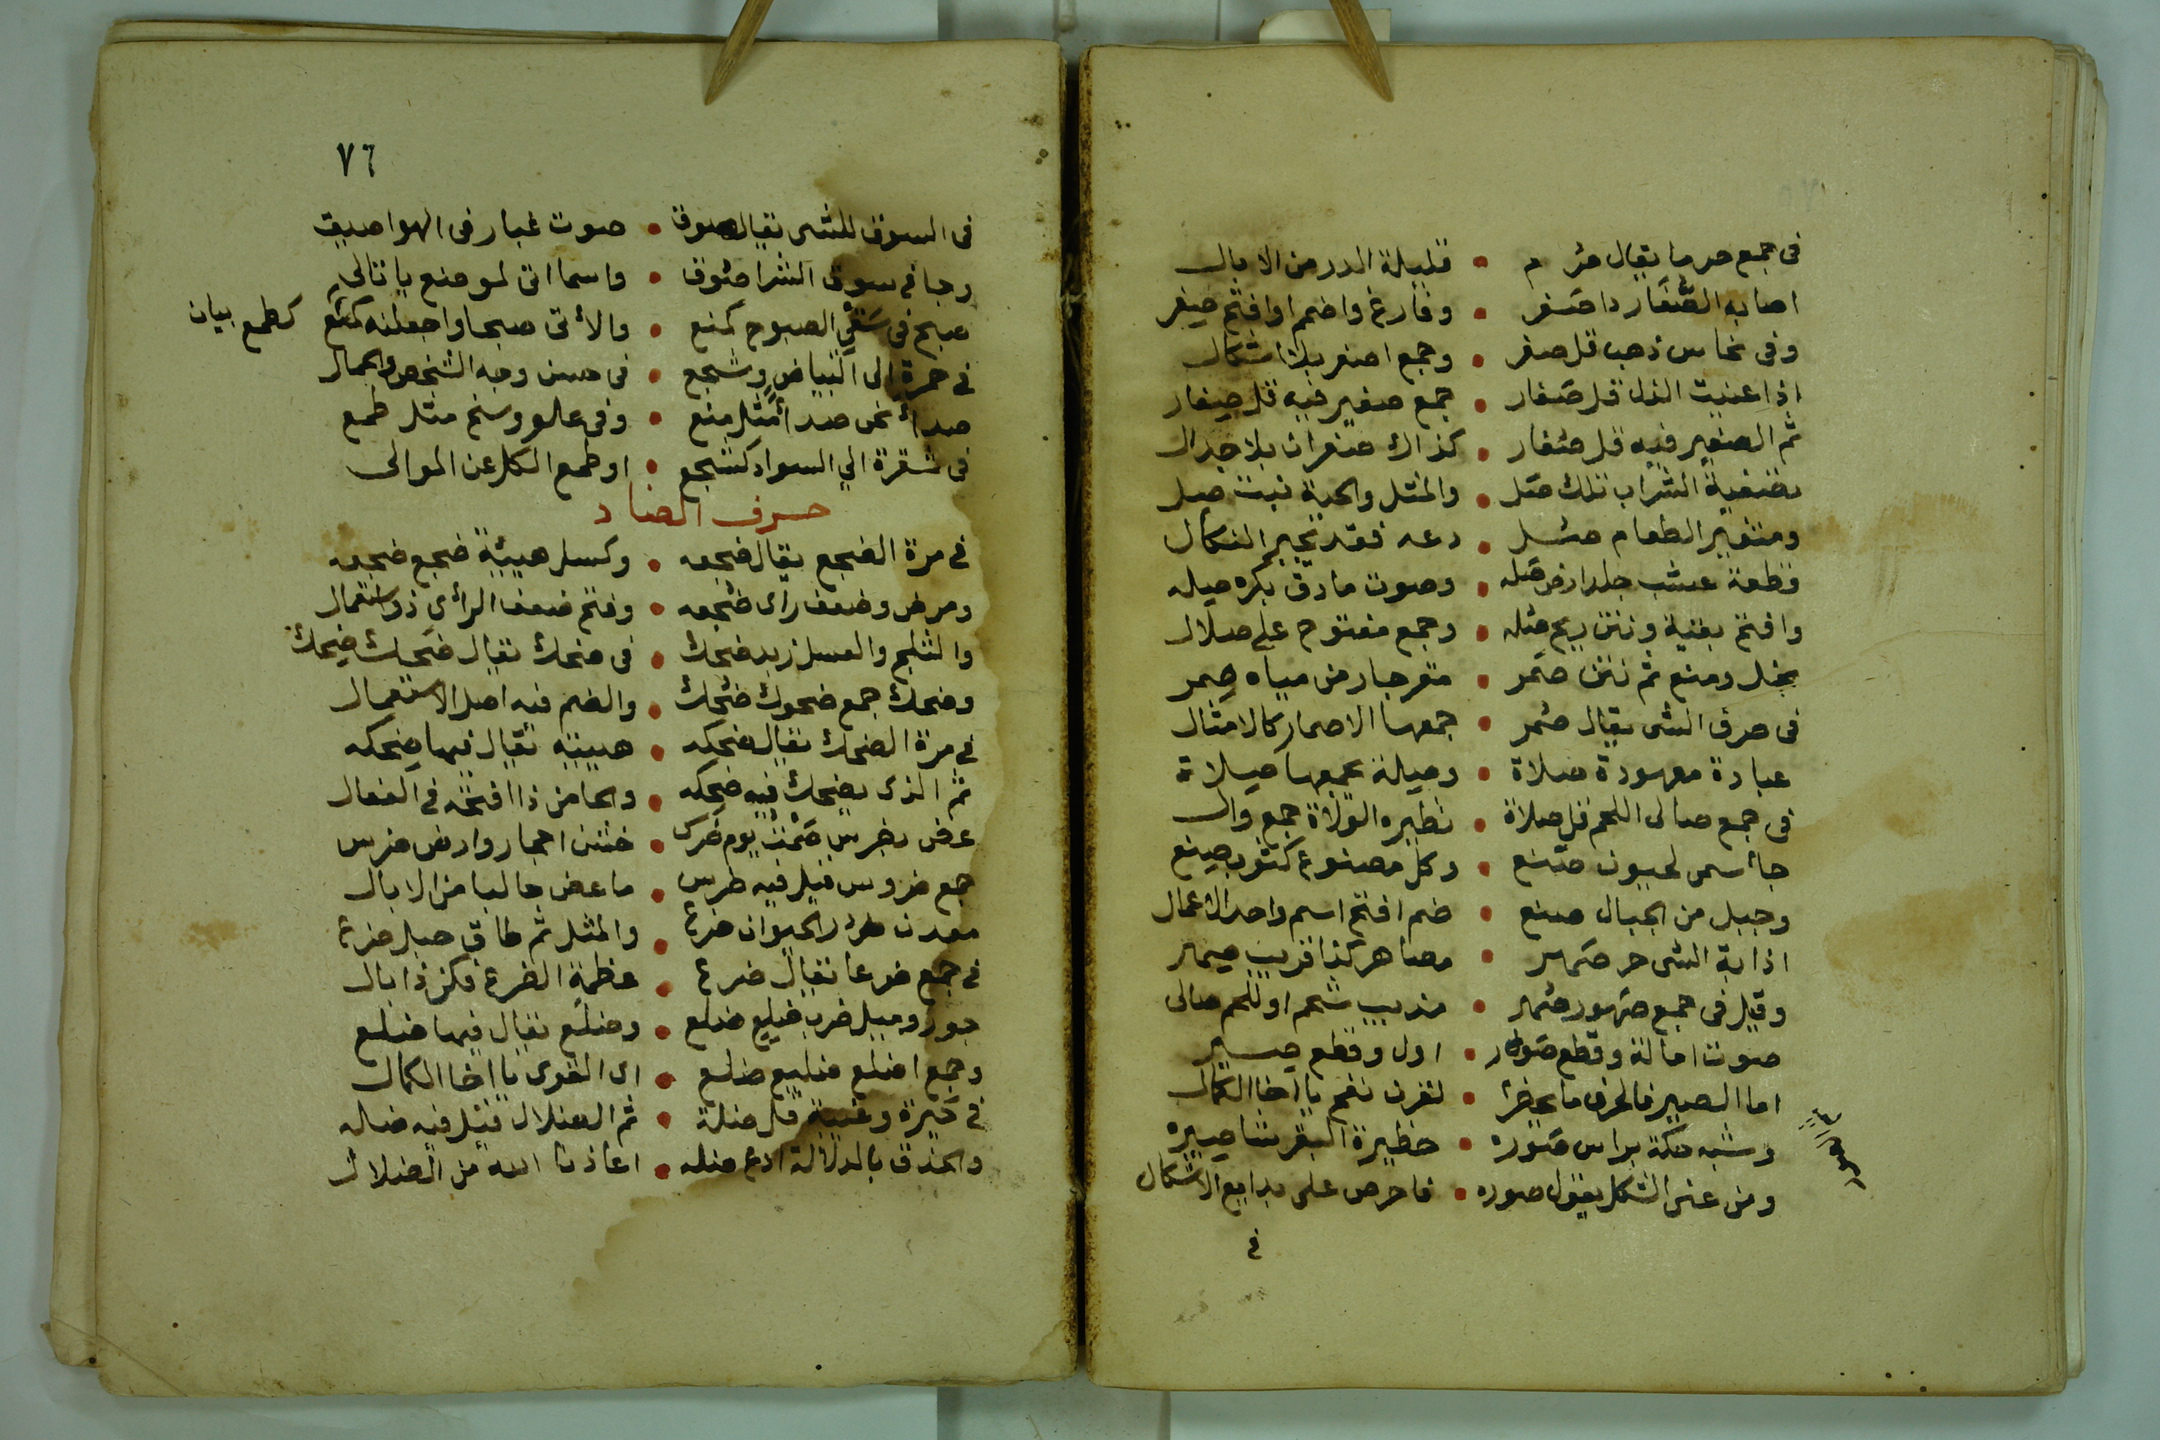 فى جمع صرما يقال صرم • قليلة الدر من الابال
اصابه الصفار داصفر • وفارغ واضمم اوافتح صفر
وفى نحاس ذهب قل صفر • وجمع اصفر بلا اشكال
اذا عنيت الذل قل صغار • جمع صغير فيه قل صغار
ثم الصغير فيه قل صغار • كذاك صغران بلا جدال
تصفية الشراب تلك صل • والمثل والحية نبت صل
ومتغير الطعام صل • دعه فقد
قطعة عشب جلد ارض صله • وصوت مادق بكره صله
وافتح بقية ونتن ريح صله • وجمع مفتوح على صلال
بخل ومنع ثم نتن صمر • مقر جار من مياه صمر
فى حرف الشى يقال صمر • جمعها الاصمار كالامثال
عبادة معهودة صلاة • وصلة جمعها صلاة
فى جمع صالى اللحم قل صلاة • نظيره الولاة جمع وال
جا أسمى لحيون صنع • وكل مصنوع كثوب صنع
وجبل من الجبال صنع • ضم افتح اسم واحد الاعمال
اذابة الشى حر صهر • مصاهر كذا قريب صهر
وقيل فى جمع صهور صهر • مذيب شحم او للحم صالى
صوت امالة وقطع صور • اول وقطع صير
اما الصير فالحرف ما يحضر • لقرن نفخ يا اخا الكمال
وشبه حكة براس صوره • حظيرة البقر شا صيره
ومن عنى الشكل يقول صوره • فاحرص على بدايع الاشكال
فى
٧٦
فى السوق للشى يقال صوق • صوت غبار فى الهوا صيق
وجا فى سوق الشرا صوق • واسما اتى لموضع يا تالى
صبح فى سقي الصبوح كمنع • والأتى صبحا واجعلنه كمنع كطمع بيان
فى حمرة الى البياض وشجع • فى حسن وجه الشخص والجمال
صدأ نحن صدأ مثل منع • وفى علو وسنح مثل طمع
فى شقرة الى السواد كشجع • او طمع الكل عن الموالى
حرف الضاد
فى مرة الضجع يقال ضجعه • وكسل هيئة ضجع ضجعه
ومرض وضعف راى ضجعه • وفتح ضعف الرأي ذو استعمال
والثلج والعسل زبد ضحك • فى ضحك يقال ضحك ضحك
وضحك جمع ضحوك ضحك • والضم فيه اصل الاستعمال
فى مرة الضحك يقال ضحكه • هيئته يقال فيها ضحكه
ثم الذى يضحك فيه ضحكه • والحا من ذا افتحه فى الفعال
عض بضرس صمت يوم ضرس • خشن احجار وارض ضرس
جمع ضروس قيل فيه ضرس • ما عض حالبا من الابال
معدن در الحيوان ضرع • والمثل ثم طاق حبل ضرع
فى جمع ضرعا يقال ضرع • عظمة الضرع فكن ذا بال
جور وميل ضرب ضلع ضلع • وضلع يقال فيها ضلع
وجمع اضلع ضليع ضلع • اى القوى يا اخا الكمال
فى حيرة وغيبة قل ضلة • ثم الضلال قيل فيه ضله
والحذق بالدلالة ادع ضله • اعاذنا الله من الضلال